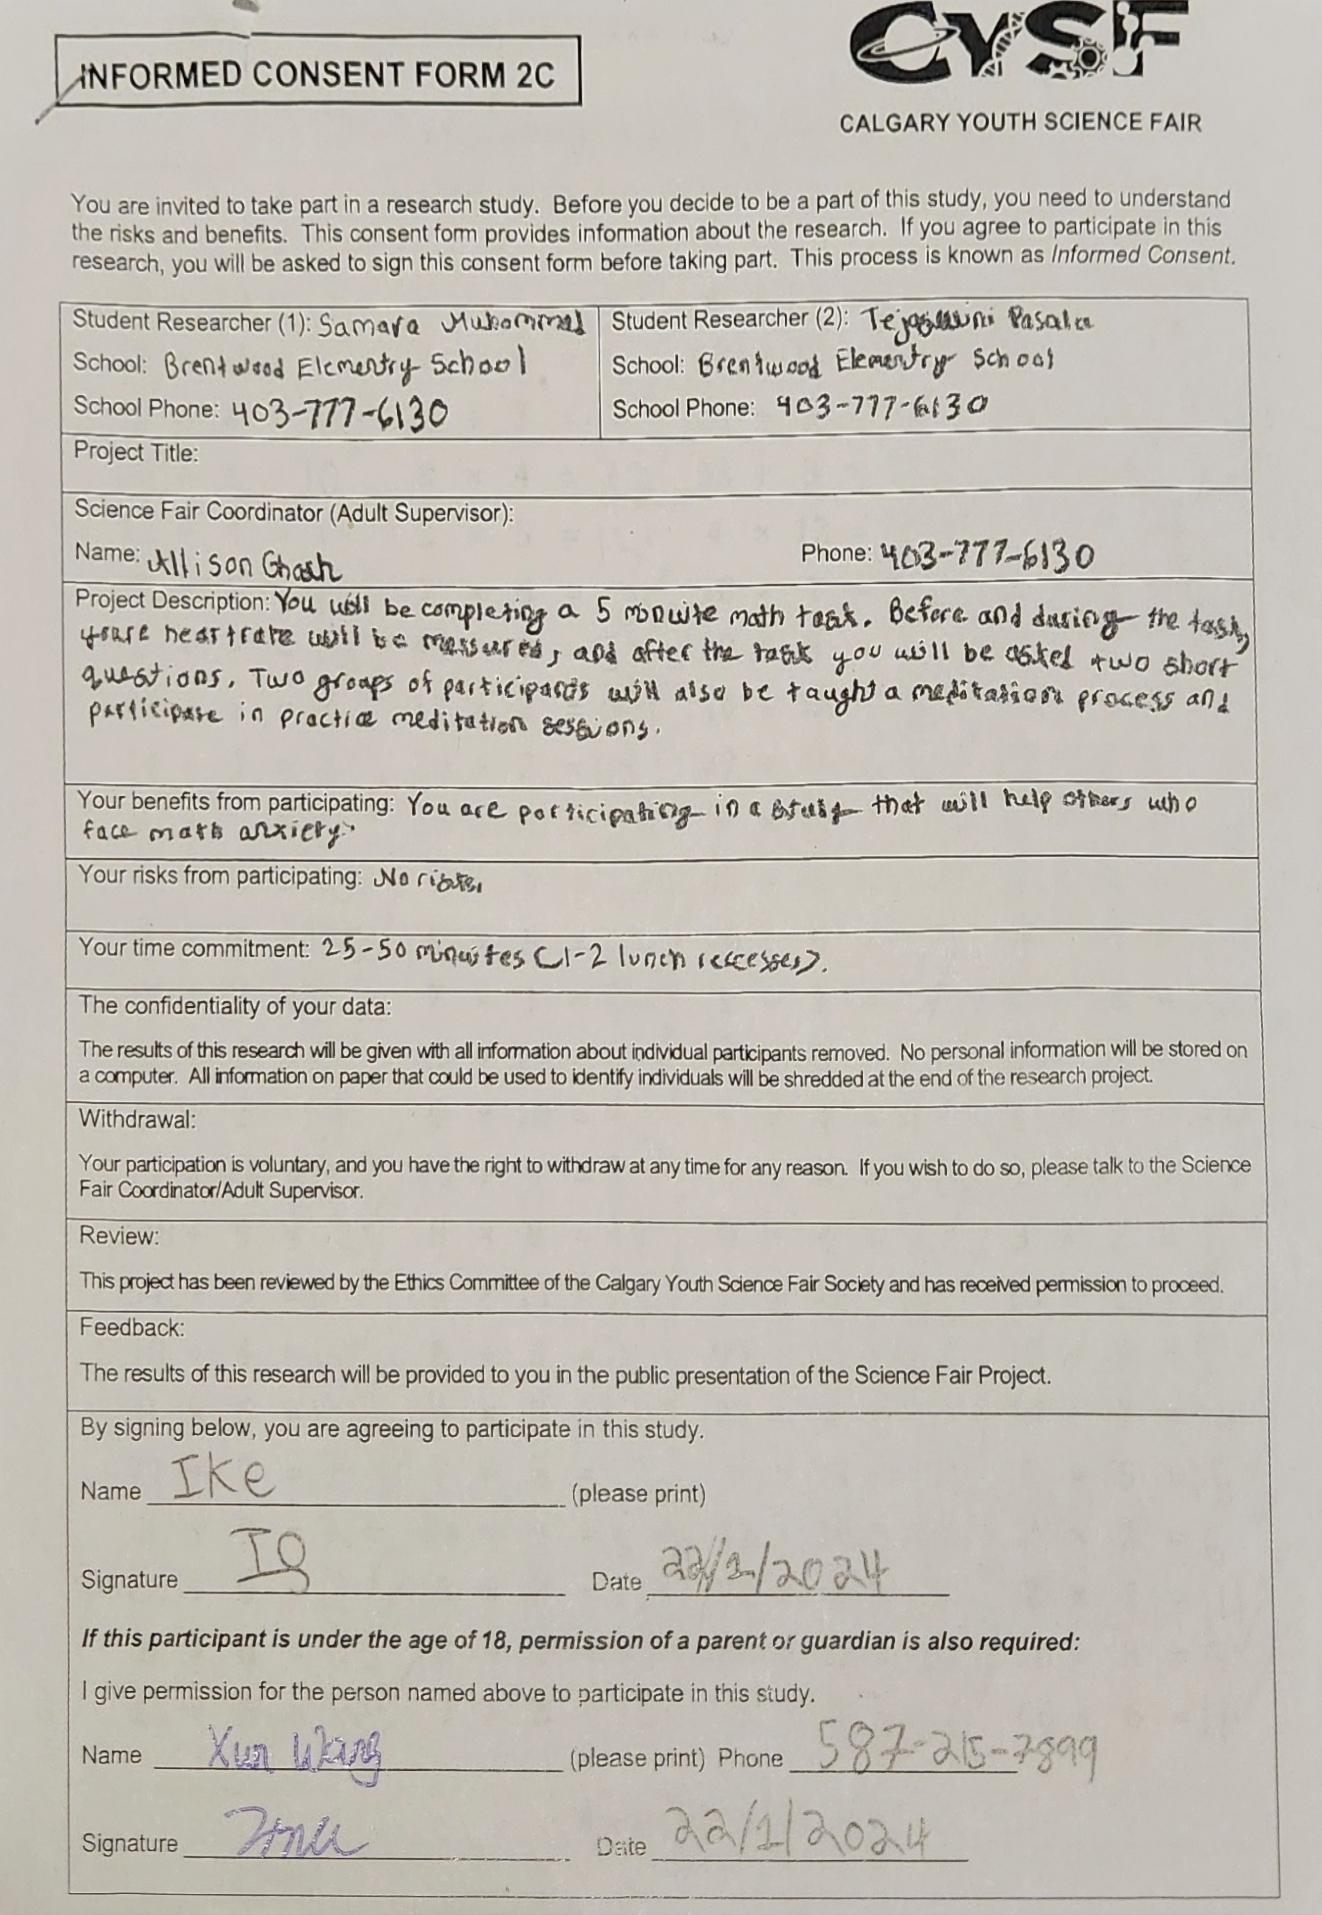 CYSF
INFORMED CONSENT FORM 2C
CALGARY YOUTH SCIENCE FAIR
You are invited to take part in a research study. Before you decide to be a part of this study, you need to understand
the risks and benefits. This consent form provides information about the research. If you agree to participate in this
research, you will be asked to sign this consent form before taking part. This process is known as Informed Consent.
Student Researcher (1): Samara Muhammad
School: Brentwood Elementry School
School Phone: 403-777-6130
Student Researcher (2):
School: Brentwood Elementry School
School Phone: 403-777-6130
Project Title:
Science Fair Coordinator (Adult Supervisor):
Name: Allison Ghosh
Phone: 403-777-6130
Project Description: You will be completing a 5 minute math task. Before and during the task,
heartrate will be messured, and after the task you will be asked two short
questions. Two groups of will also be taught a meditation process and
participate in practice meditation sessions.
Your benefits from participating: You are participating in a study that will help others who
face math anxiety.
Your risks from participating: No risks.
Your time commitment: 25-50 minutes (1-2 lunch reccesses).
The confidentiality of your data:
The results of this research will be given with all information about individual participants removed. No personal information will be stored on
a computer. All information on paper that could be used to identify individuals will be shredded at the end of the research project.
Withdrawal:
Your participation is voluntary, and you have the right to withdraw at any time for any reason. If you wish to do so, please talk to the Science
Fair Coordinator/Adult Supervisor.
Review:
This project has been reviewed by the Ethics Committee of the Calgary Youth Science Fair Society and has received permission to proceed.
Feedback:
The results of this research will be provided to you in the public presentation of the Science Fair Project.
By signing below, you are agreeing to participate in this study.
Name Ike (please print)
Signature IQ Date 22/1/2024
If this participant is under the age of 18, permission of a parent or guardian is also required:
I give permission for the person named above to participate in this study.
Name Xun Wang (please print) Phone 587-215-7899
Signature Date 22/1/2024